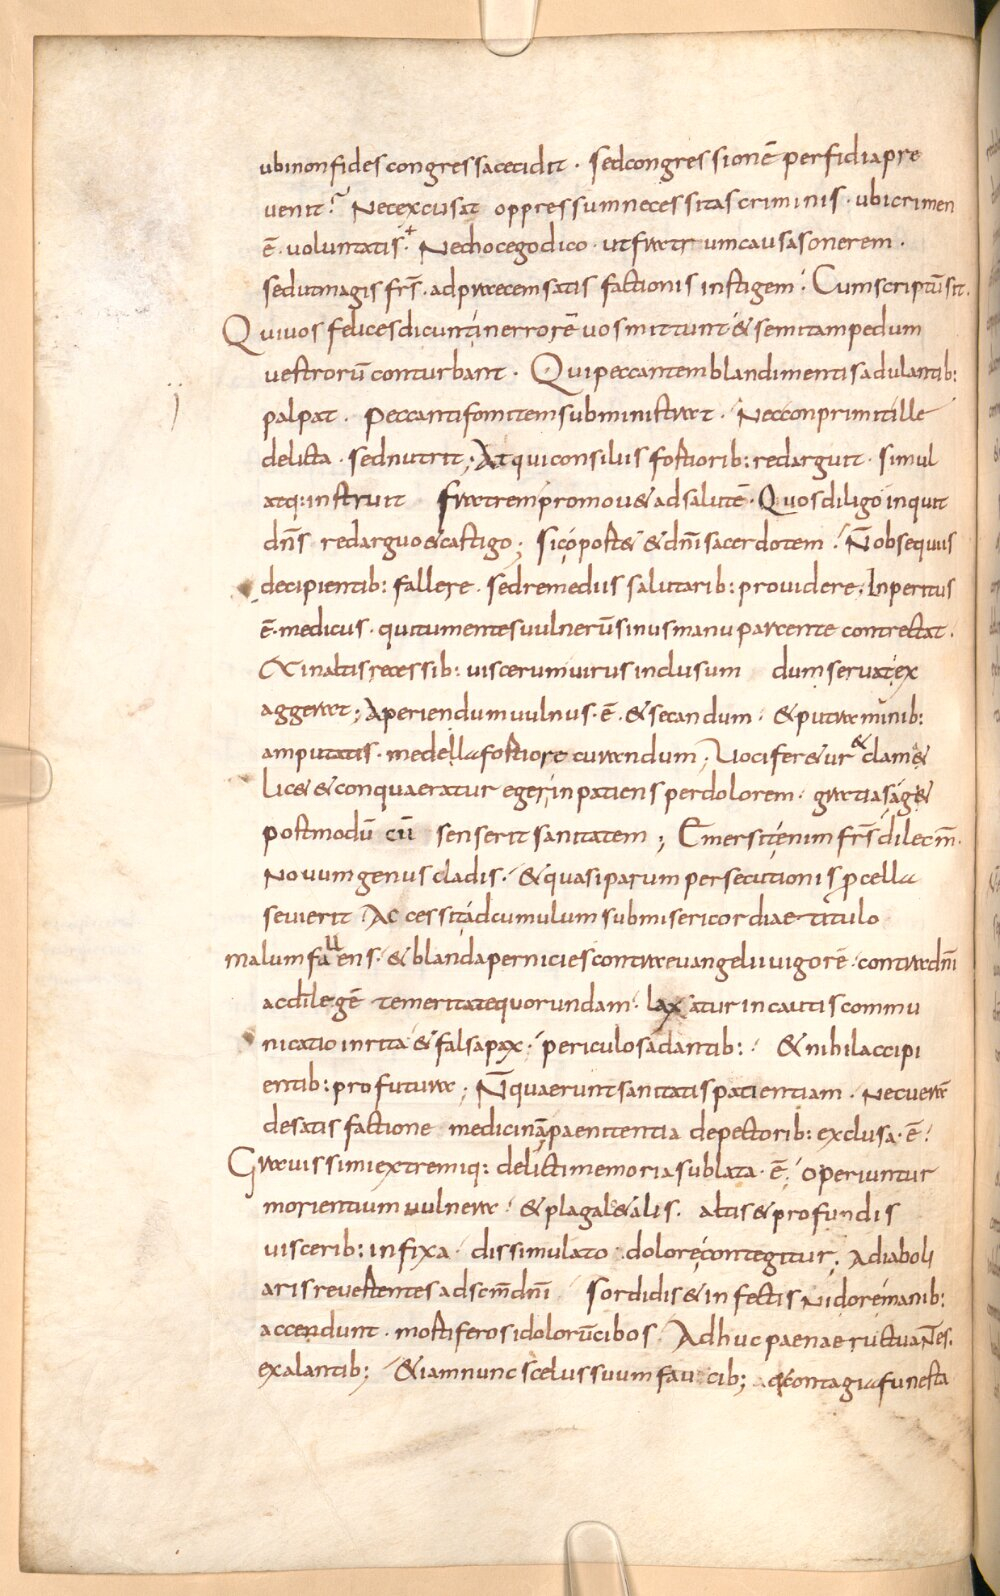 ubi non fides congressa cecidit · sed congressionē perfidia pre
venit? Nec excusat oppressum necessitas criminis · ubi crimen
ē · voluntatis · Nec hoc ego dico · ut fratrum causas onerem ·
sed ut magis frs̄ · ad praecem satisfactionis instigem · Cum scriptū sit ·
Qui vos felices dicunt in errorē vos mittunt & semitam pedum
vestrorū conturbant · Qui peccantem blandimentis adulantib:
palpat · peccanti fomitem subministrat · Nec conprimit ille
delicta · sed nutrit ; At qui consiliis fortiorib: redarguit · simul
atq: instruit fratrem promou& ad salutē · Quos diligo inquit
dn̄s redarguo & castigo ; sic oport& & dn̄i sacerdotem · N̄ obsequiis
decipientib: fallere · sed remediis salutarib: providere ; Inperitus
ē · medicus · qui tumentes vulnerū sinus manu parcente contrectat ·
& in altis recessib: viscerum virus inclusum dum servat ex
aggerat ; Aperiendum vulnus · ē · & secandum · & putraminib:
amputatis · medella fortiore curandum ; Vocifer&ur & clam&
lic& & conquaeratur eger inpatiens per dolorem · gratias ag&
postmodū cū senserit sanitatem ; Emersit enim frs̄ dilec m̄ ·
Novum genus cladis · & quasi parum persecutionis p̱cella
sevierit · Accessit ad cumulum sub misericordiae titulo
malum fallens · & blanda pernicies contra evangelii vigorē · contra dn̄i
ac di legē temeritate quorundam · laxatur incautis commu
nicatio inrita & falsa pax · periculosa dantib: · & nihil accipi
entib: profutura ; N̄ quaerunt sanitatis patientiam · Nec verā
de satisfactione medicinā paenitentia de pectorib: exclusa · ē ·
Gravissimi extremiq: delicti memoria sublata · ē ; operiuntur
morientium vulnera · & plaga l&alis · altis & profundis
viscerib: infixa · dissimulato dolore contegitur ; A diaboli
aris revertentes ad scm̄ dn̄i sordidis & infectis nidore manib:
accendunt · mortiferos idolorū cibos · Adhuc paenae ructuantes ·
exalantib: & iam nunc scelus suum faucib: & contagia funesta